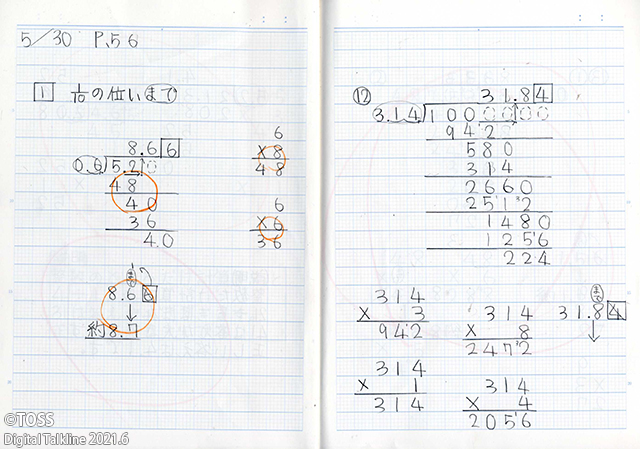 5/30 P.56
1 1/10の位いまで
8.66
0.6)5.20
48
40
36
4.0
6
×8
48
6
×6
36
まで
8.66
↓
約8.7
⑫ 31.84
3.14)1000000
942
580
314
2660
2512
1480
1256
224
314
× 3
942
314
× 8
2472
まで
31.84
↓
314
× 1
314
314
× 4
2056
©TOSS
Digital Talkline 2021.6